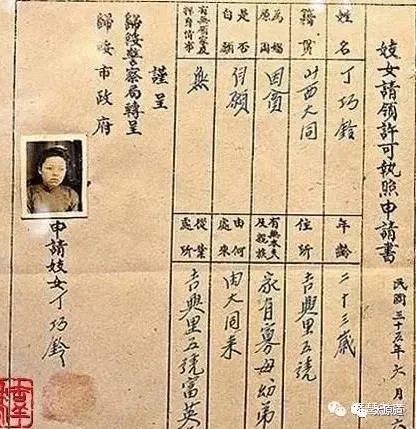 妓女請領許可執照申請書
民國三十五年六月六
姓名 丁巧鈴
年齡 二十三歲
籍貫 山西大同
住所 吉興里五號
為娼原因 因貧
有無本夫及親族 家有寡母幼弟
是否自願 自願
由何處來 由大同來
有無及押身情事 無
從業處所 吉興里五號富英
謹呈
歸綏警察局轉呈
歸綏市政府
申請妓女丁巧鈴